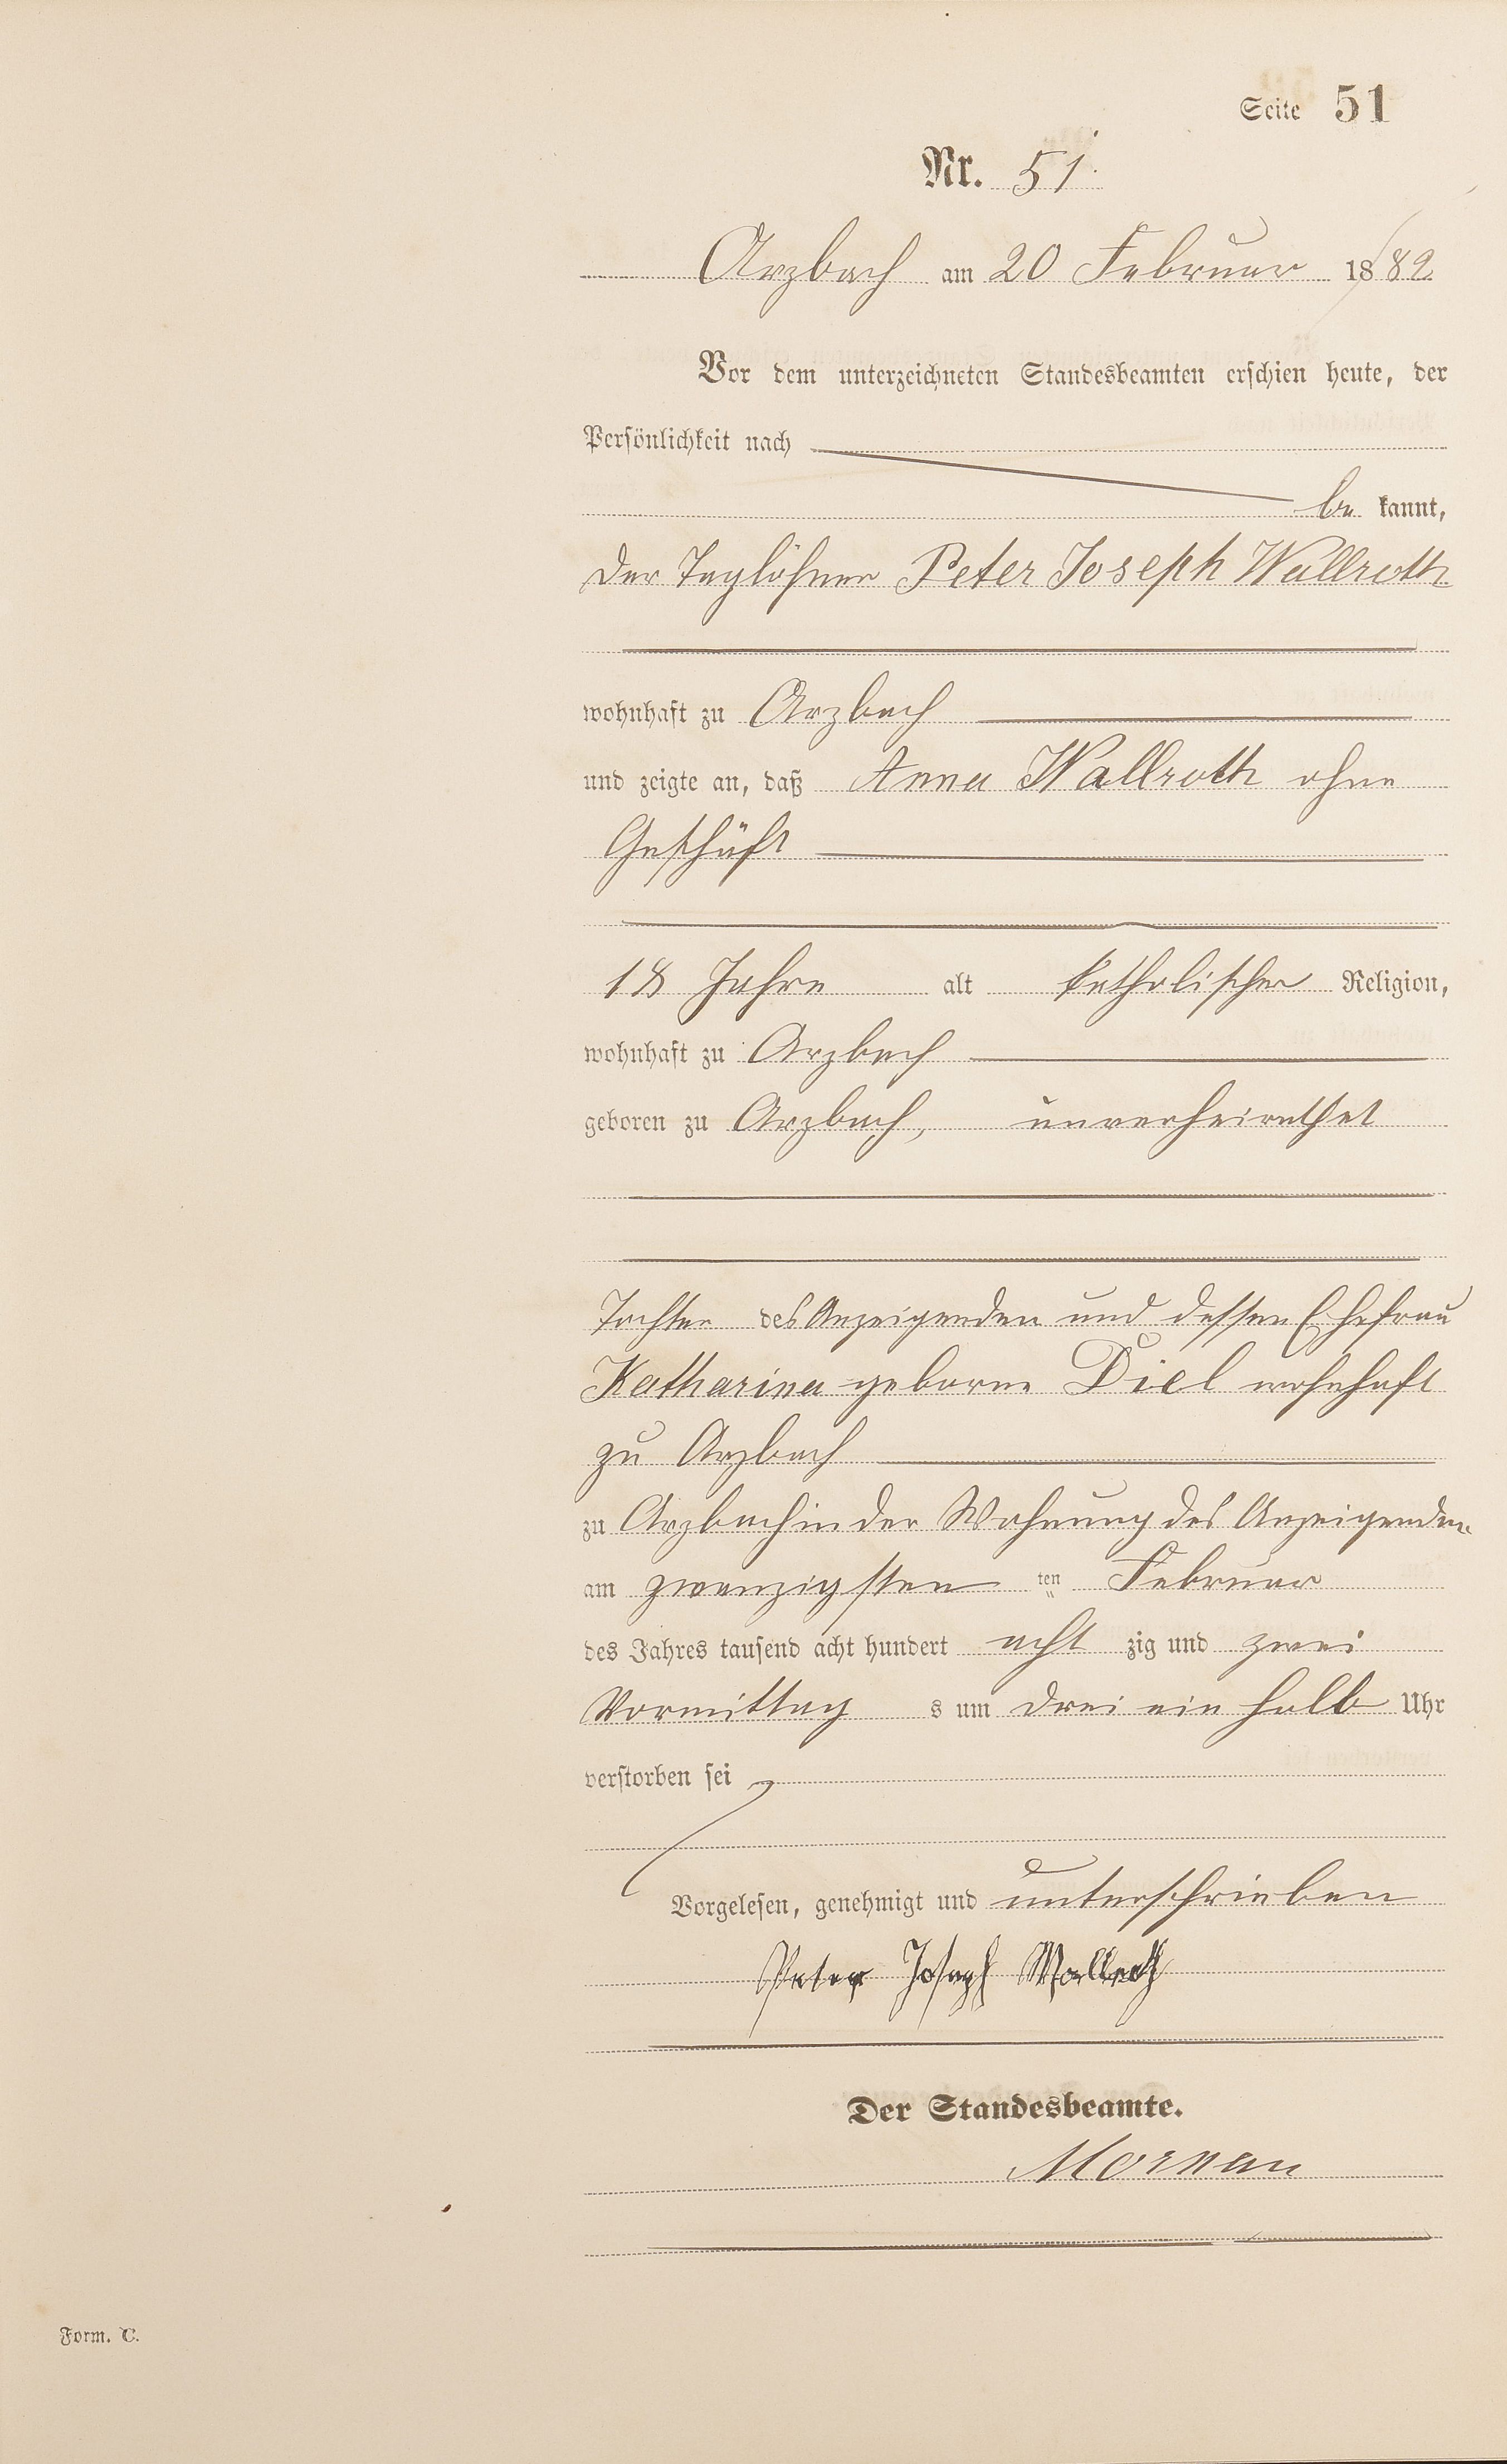 Seite 51
Nr. 51.
Arzbach am 20 Februar 1882
Vor dem unterzeichneten Standesbeamten erschien heute, der
Persönlichkeit nach
be kannt,
der Taglöhner Peter Joseph Wallroth
wohnhaft zu Arzbach
und zeigte an, daß Anna Wallroth ohne
Geschäft
18 Jahre alt katholischer Religion,
wohnhaft zu Arzbach
geboren zu Arzbach, unverheirathet
Tochter des Anzeigenden und dessen Ehefrau
Katharina geborne Diel wohnhaft
zu Arzbach
zu Arzbach in der Wohnung des Anzeigenden
am zwanzigsten ten Februar
des Jahres tausend acht hundert acht zig und zwei
Vormittag s um drei ein halb Uhr
verstorben sei
Vorgelesen, genehmigt und unterschrieben
Peter Joseph Wallroth
Der Standesbeamte.
Form. C.